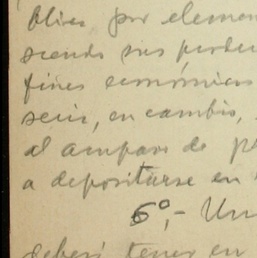 por elemen
sus
fines económicos
seis, en cambio,
al amparo de
a depositarse en
6º,- Un
deberá tener en